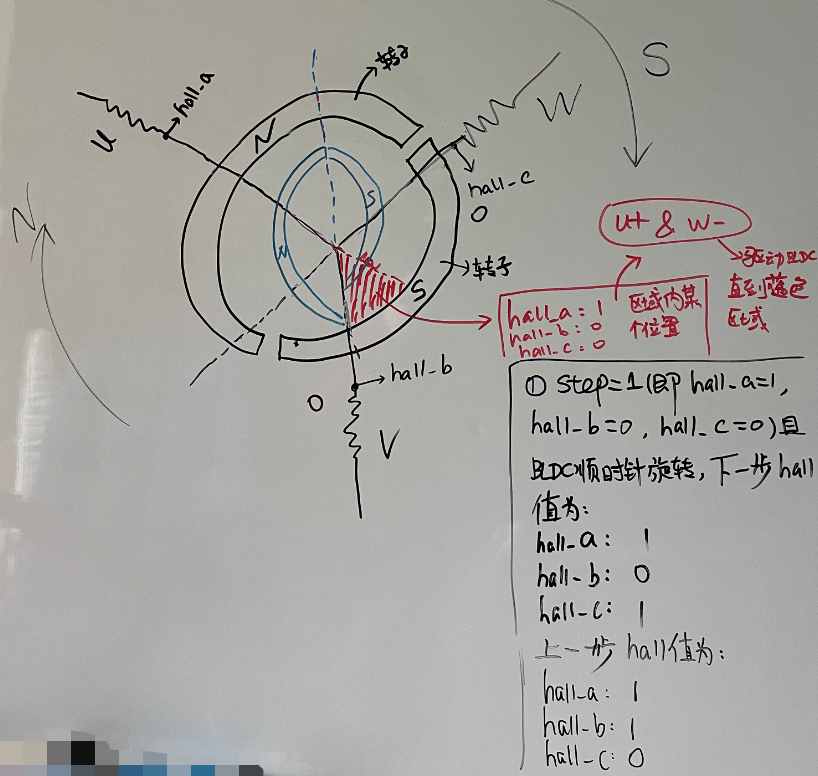 转子
hall-a
u
N
W
S
hall-c
0
N
S
N
转子
S
u+ & w-
驱动BLDC
直到蓝色
区域
hall_a: 1
hall-b: 0
hall-c: 0
区域内某
个位置
hall-b
0
V
① Step=1(即 hall-a=1,
hall-b=0, hall-c=0)且
BLDC顺时针旋转,下一步hall
值为:
hall-a: 1
hall-b: 0
hall-c: 1
上一步 hall值为:
hall-a: 1
hall-b: 1
hall-c: 0